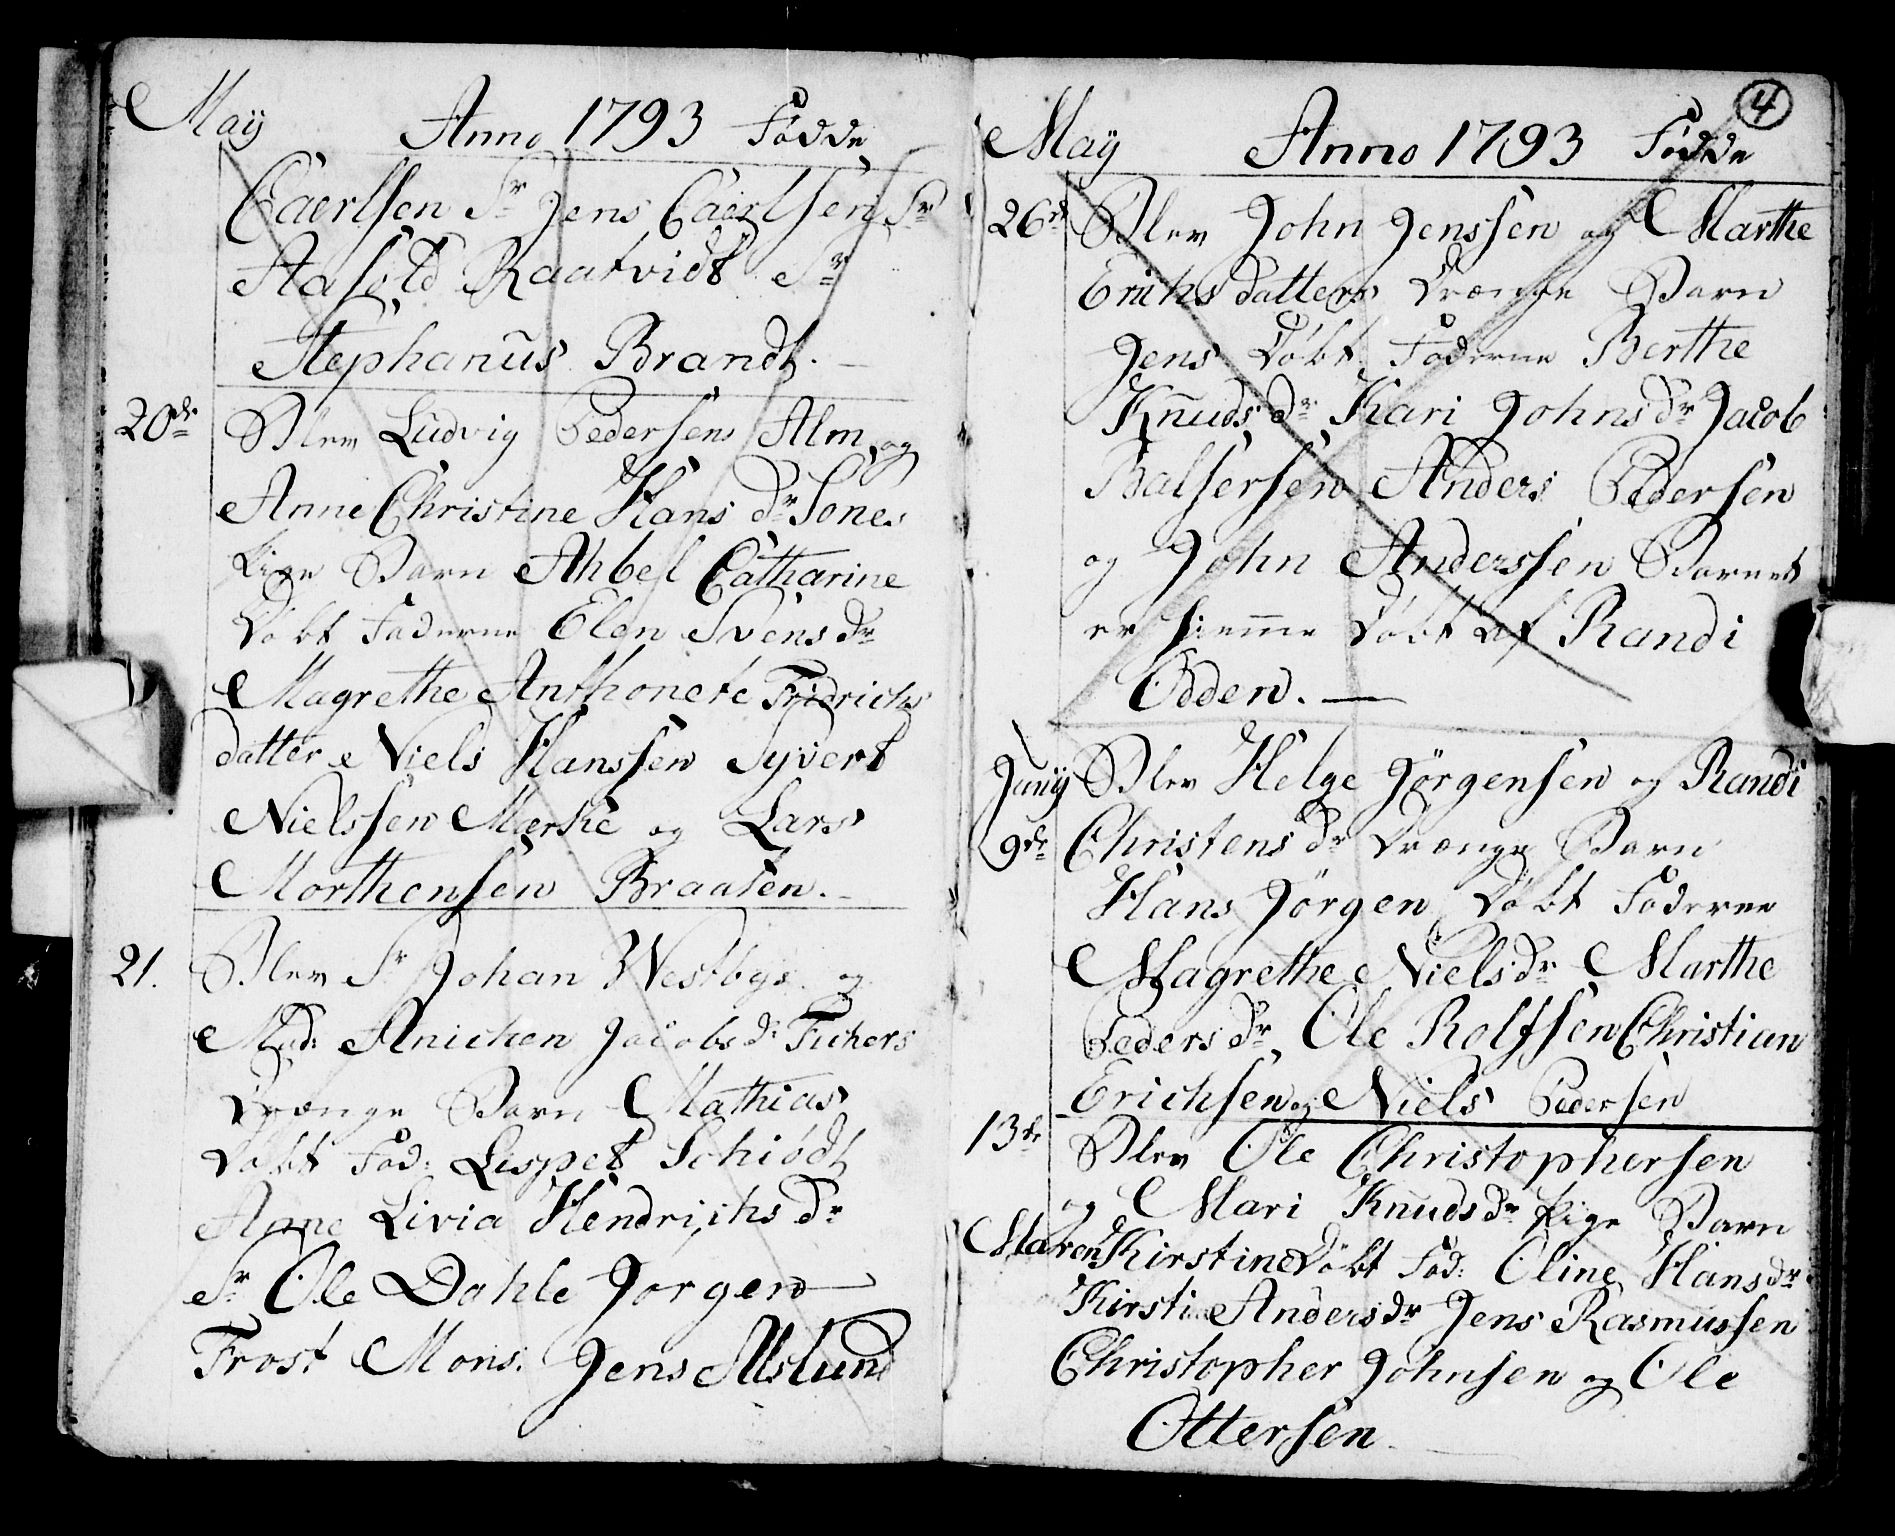 Maÿ Anno 1793 Fødde
Caerlsen Sr Jens Caerlsen Sr
Aasold Raatvidt Sr
Stephanus Brandt. —
20de Blev Ludvig Pedersens Alm og
Anne Christine Hans dr Sones
Pige Barn Ahbel Catharine
Døbt Faderne Elen Svens dr
Magrethe Anthonete Fridrichs
datter Niels Hanssen Syvert
Nielssen Mærke og Lars
Morthensen Braaten. —
21. Blev Sr Johan Westbye og
Mad: Anichen Jacobs dr Fichers
Drænge Barn Mathias
Døbt Fad: Lispet Schiødt
Anne Livia Hendrichs dr
Sr Ole Dahle Jørgen
Frost Mons. Jens Alslund
4
Maÿ Anno 1793 Fødde
26de Blev John Jenssen og Marthe
Erichs datters Drænge Barn
Jens Døbt Faderne Berthe
Knuds dr Kari Johns dr Jacob
Balsersen Anders Pedersen
og John Anderssen Barnet
er hiemme Døbt af Randi
Odden. —
Junÿ Blev Helge Jørgensen og Randi
9de Christens dr Drænge Barn
Hans Jørgen Døbt Faderne
Magrethe Niels dr Marthe
Peders dr Ole Rolfsen Christian
Erichsen og Niels Pedersen
13de Blev Ole Christophersen
og Mari Knuds dr Pige Barn
Maren Kirstine Døbt Fad: Oline Hans dr
Kirstine Anders dr Jens Rasmussen
Christopher Johnsen og Ole
Ottersen